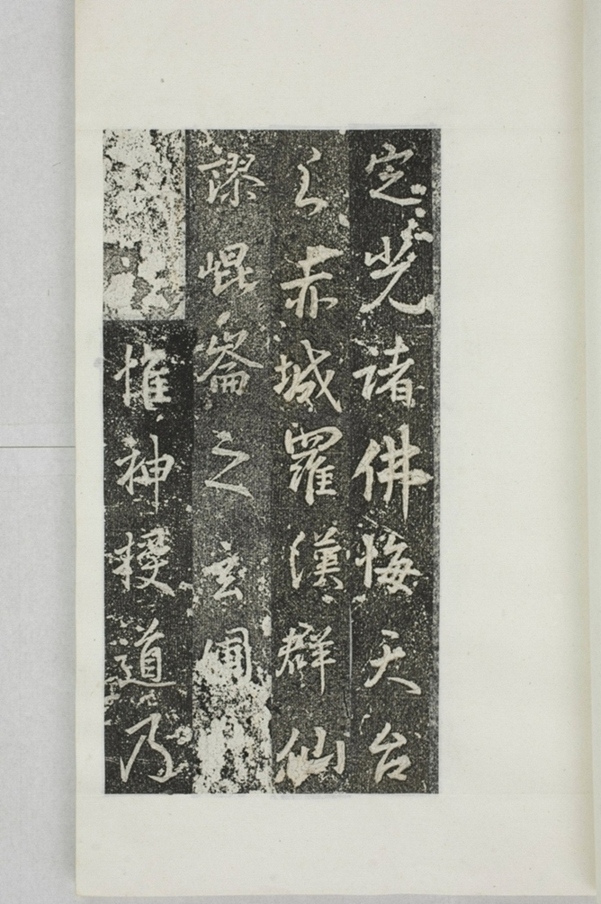 定光諸佛悔天台
之赤城羅漢群仙
謬崐崙之玄圃
惟神授道乃